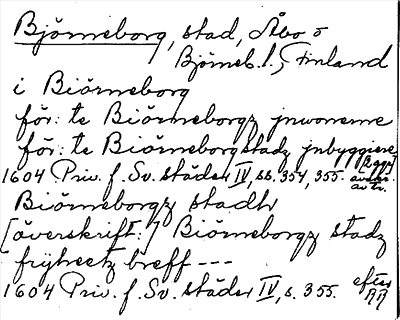 Björneborg, stad, Åbo o
Björneb. l., Finland
i Biörneborg
för: te Biörneborgz jnwonerne
för: te Biörneborgstadz jnbyggiere
1604 Priv. f. Sv. städer IV, ss. 354, 355.
Biörneborgz stadh
[överskrift:] Biörneborgz stadz
frijheetz breff ---
1604 Priv. f. Sv. städer IV, s. 355. efter RR